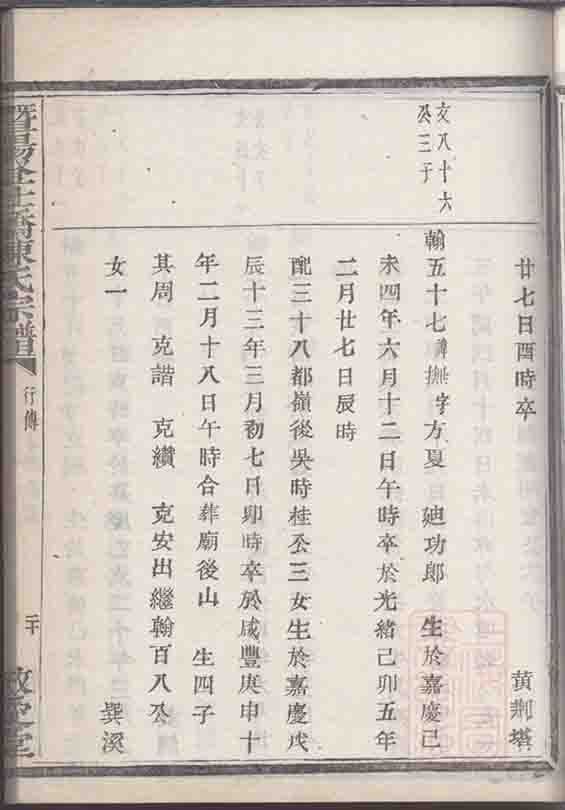 廿七日酉時卒　黃荆塔
文八十六
公三子
翰五十七諱撫字方夏　廸功郎　生於嘉慶己
未四年六月十二日午時卒於光緒己卯五年
二月廿七日辰時
配三十八都嶺後吳時桂公三女生於嘉慶戊
辰十三年三月初七日卯時卒於咸豐庚申十
年二月十八日午時合葬廟後山　生四子
其周　克諧　克纘　克安出繼翰百八公
女一　巽溪
暨陽　陳氏宗譜
行傳